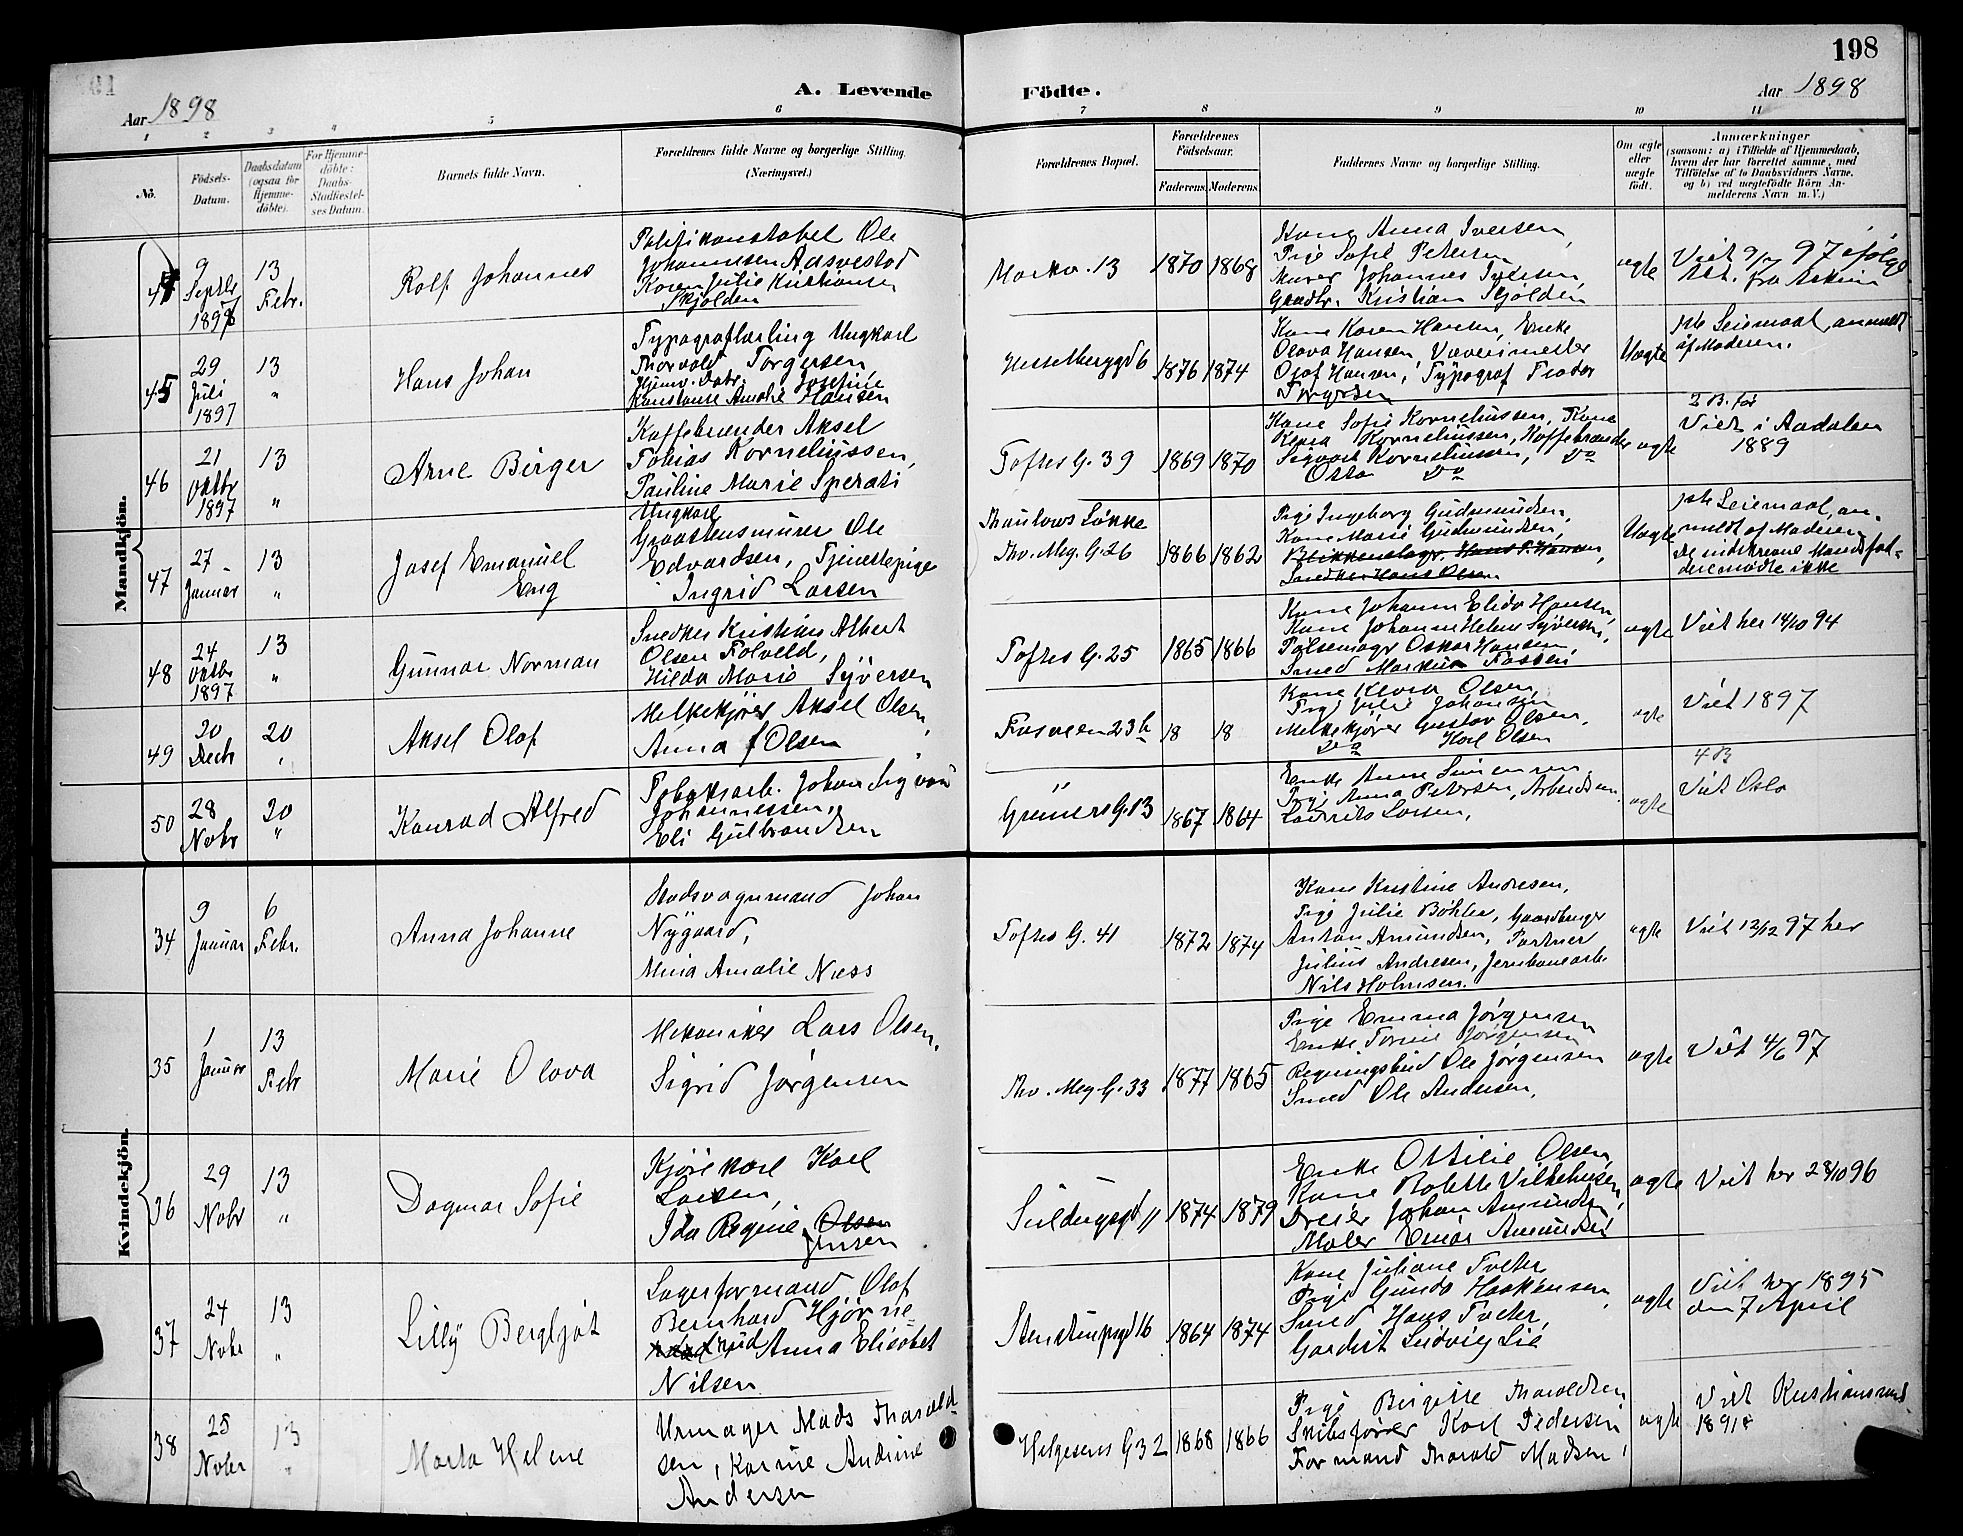 198
Aar 1898
A. Levende Födte.
Aar 1898
1 2 3 4 5 6 7 8 9 10 11
No.
Födsels-
Datum.
Daabsdatum
(ogsaa for
Hjemme-
döbte).
For Hjemme-
döbte:
Daabs-
Stadfæstel-
ses Datum.
Barnets fulde Navn.
Forældrenes fulde Navne og borgerlige Stilling.
(Næringsvei.)
Forældrenes Bopæl.
Forældrenes
Födselsaar.
Faderens. Moderens.
Faddernes Navne og borgerlige Stilling.
Om ægte
eller
uægte
födt.
Anmærkninger
(saasom: a) i Tilfælde af Hjemmedaab,
hvem der har forrettet samme, med
Tilföielse af to Daabsvidners Navne,
og b) ved uægtefödte Börn An-
melderens Navn m. V.)
Mandkjön.
9
Septbr
1897
13
Febr.
Rolf Johannes
Politikonstabel Ole
Johannesen Aasvestad
Karen Julie Kristiansen
Skjolden
Markv. 13
1870
1868
Kone Anna Iversen,
Pige Sofie Petersen
Murer Johannes
Gaardbr. Kristian Skjolden
ægte
Viet 9/7 97 ifølge
Att. fra Askim
45
29
Juli
1897
13
"
Hans Johan
Typograflærling Ungkarl
Thorvald Torgersen
Hjemv. Datr. Josefine
Konstanse Amalie Hansen
Hesselberggd 6
1876
1874
Kone Karen Hansen, Enke
Olava Hansen, Væverimester
Olaf Hansen, Typograf Teodor
Torgersen
Uægte
1ste Leiemaal, anmeldt
af Moderen.
46
21
Oktbr
1897
13
"
Arne Birger
Kaffebrænder Aksel
Tobias Korneliussen,
Pauline Marie Sperati
Toftes G. 39
1869
1870
Kone Sofie Korneliussen, Kone
Klara Korneliussen, Kaffebrænder
Sigvart Korneliussen, Do
Otto Do
ægte
2 B. før
Viet i Aadalen
1889
47
27
Januar
13
"
Josef Emanuel
Eng
Ungkarl
Graastensmurer Ole
Edvardsen, Tjenestepige
Ingrid Larsen
Thaulows Løkke
Thv. Mey. G. 26
1866
1862
Pige Ingeborg Gudmundsen,
Kone Marie Gudmundsen,
Blikkenslagr. Hans P. Hansen,
Snedker Hans Olsen
Uægte
1ste Leiemaal, an-
meldt af Moderen
De indskrevne Mandsfad-
dere mødte ikke
48
24
Oktbr
1897
13
"
Gunnar Norman
Snedker Kristian Albert
Olsen Folveld,
Hilda Marie Syversen
Toftes G. 25
1865
1866
Kone Johanne Elida Hansen,
Kone Johanne Helene Syversen,
Pølsemagr Oskar Hansen,
Smed Markus Fossen
ægte
Viet her 14/10 94
49
20
Decbr
20
"
Aksel Olaf
Melkekjører Aksel Olsen,
Anna f Olsen
Fosveien 23 b
18
18
Kone Klara Olsen,
Pige Julie Johansen
Melkekjører Gustav Olsen,
Do Karl Olsen
ægte
Viet 1897
50
28
Novbr
20
"
Konrad Alfred
Tobaksarb. Johan Sigvart
Johannessen,
Eli Gulbrandsen
Grüners G. 13
1867
1864
Enke Anne Simensen
Pige Anna Petersen, Arbeidsm.
Laurits Larsen,
ægte
4 B
Viet Oslo
Kvindekjön.
34
9
Januar
6
Febr.
Anna Johanne
Stadsvognmand Johan
Nygaard,
Mina Amalie Næss
Toftes G. 41
1872
1874
Kone Kristine Andresen,
Pige Julie Bøhler, Gaardbruger
Anton Amundsen, Portner
Julius Andresen, Jernbanearb.
Nils Holmsen.
ægte
Viet 12/12 97 her
35
1
Januar
13
Febr
Marie Olava
Mekaniker Lars Olsen,
Sigrid Jørgensen
Thv. Mey G. 33
1871
1865
Pige Emma Jørgensen
Enke Torine Jørgensen
Regningsbud Ole Jørgensen
Smed Ole Andersen,
ægte
Viet 4/6 97
36
29
Novbr
13
"
Dagmar Sofie
Kjørekarl Karl
Larsen,
Ida Regine Olsen
Jensen
1874
1879
Enke Ottilie Olsen
Kone Bolette Vilhelmsen,
Dreier Johan Amundsen,
Maler Einar Amundsen
ægte
Viet her 28/10 96
37
24
Novbr
13
"
Lilly Bergljot
Lagerformand Olaf
Bernhard Hjørne-
rud Anna Elisabet
Nilsen
Stenstrupgd 16
1864
1874
Kone Juliane Tveter
Pige Gunda Haakensen,
Smed Hans Tveter,
Gardist Ludvig Lie
ægte
Viet her 1895
den 7 April
38
25
Novbr
13
"
Marta Helene
Urmager Mads Tharald-
sen, Karine Andrine
Andersen
Helgesens G 32
1868
1866
Pige Birgitte Tharaldsen
Skibsfører Karl Pedersen
Formand Tharald Madsen,
ægte
Viet Kristiansund
1891